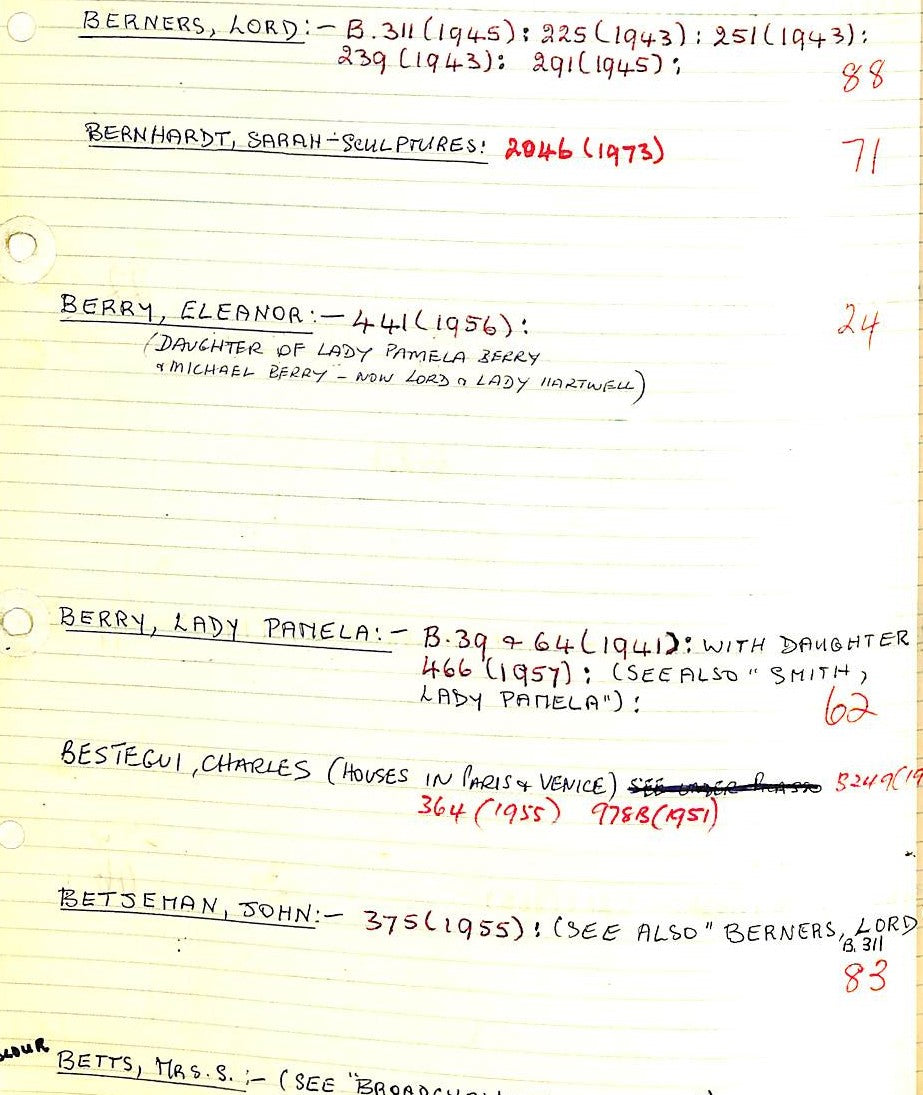 BERNERS, LORD:- B.311(1945): 225(1943): 251(1943):
239(1943): 291(1945);
88
BERNHARDT, SARAH-SCULPTURES: 2046(1973)
71
BERRY, ELEANOR:- 441(1956):
24
(DAUGHTER OF LADY PAMELA BERRY
& MICHAEL BERRY - NOW LORD & LADY HARTWELL)
BERRY, LADY PAMELA:- B.39 & 64(1941): WITH DAUGHTER
466(1957): (SEE ALSO "SMITH,
LADY PAMELA"):
62
BESTEGUI, CHARLES (HOUSES IN PARIS & VENICE) SEE UNDER B249(19
364(1955) 978B(1951)
BETJEMAN, JOHN:- 375(1955): (SEE ALSO "BERNERS, LORD
B.311
83
BETTS, MRS. S.:- (SEE